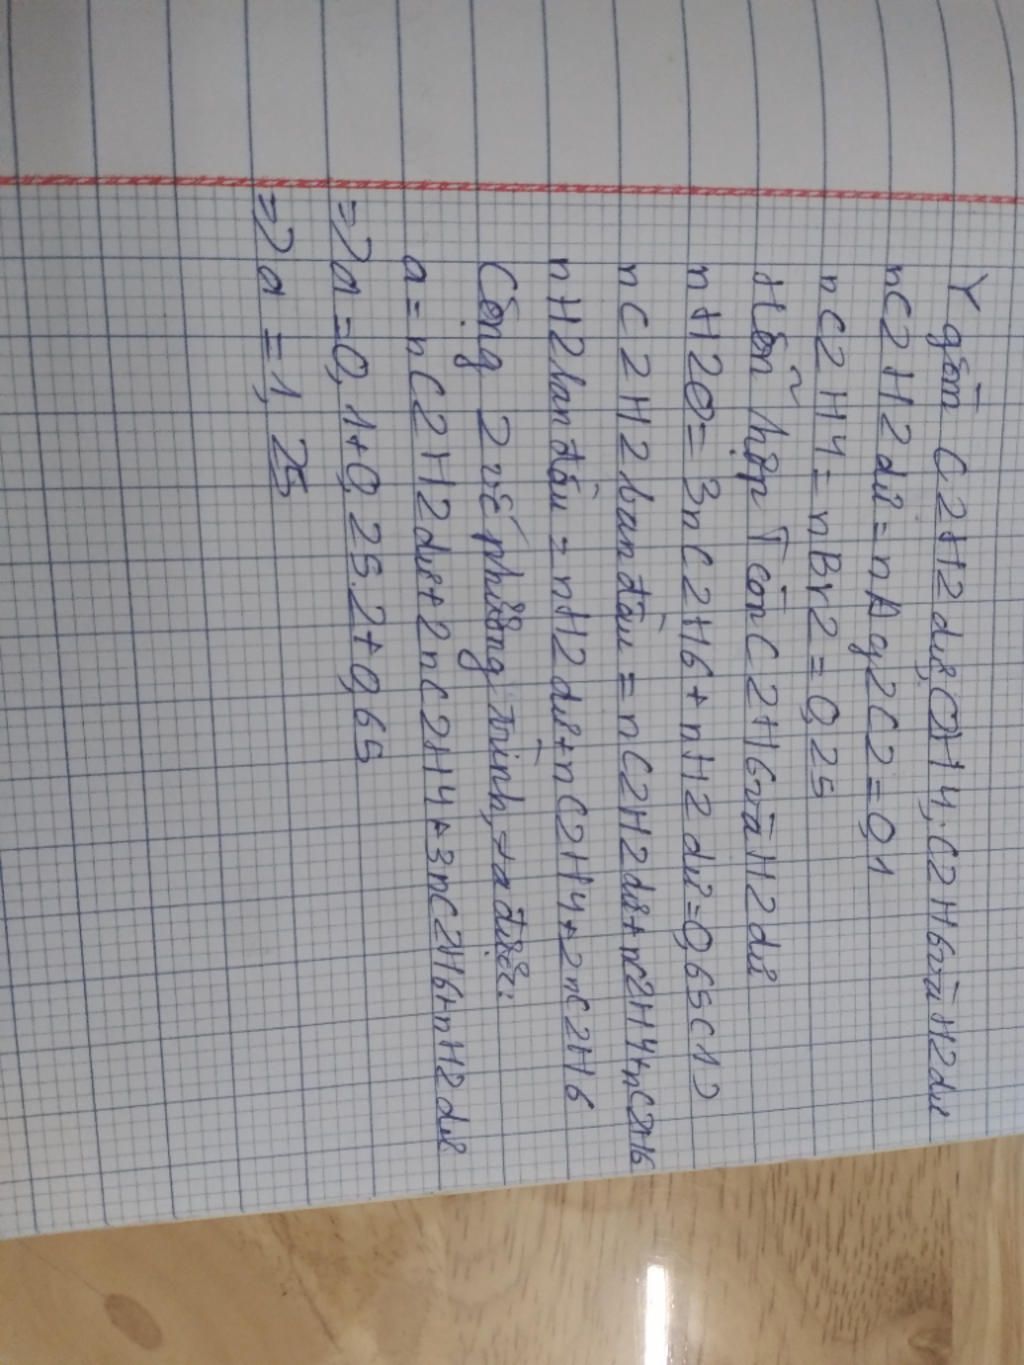 Y gồm C2H2 dư, C2H4, C2H6 và H2 dư
nC2H2 dư = nAg2C2 = 0,1
nC2H4 = nBr2 = 0,25
Hỗn hợp T còn C2H6 và H2 dư
nH2O = 3nC2H6 + nH2 dư = 0,65 (1)
nC2H2 ban đầu = nC2H2 dư + nC2H4 + nC2H6
nH2 ban đầu = nH2 dư + nC2H4 + 2nC2H6
Cộng 2 vế phương trình, ta được:
a = nC2H2 dư + 2nC2H4 + 3nC2H6 + nH2 dư
=> a = 0,1 + 0,25.2 + 0,65
=> a = 1,25